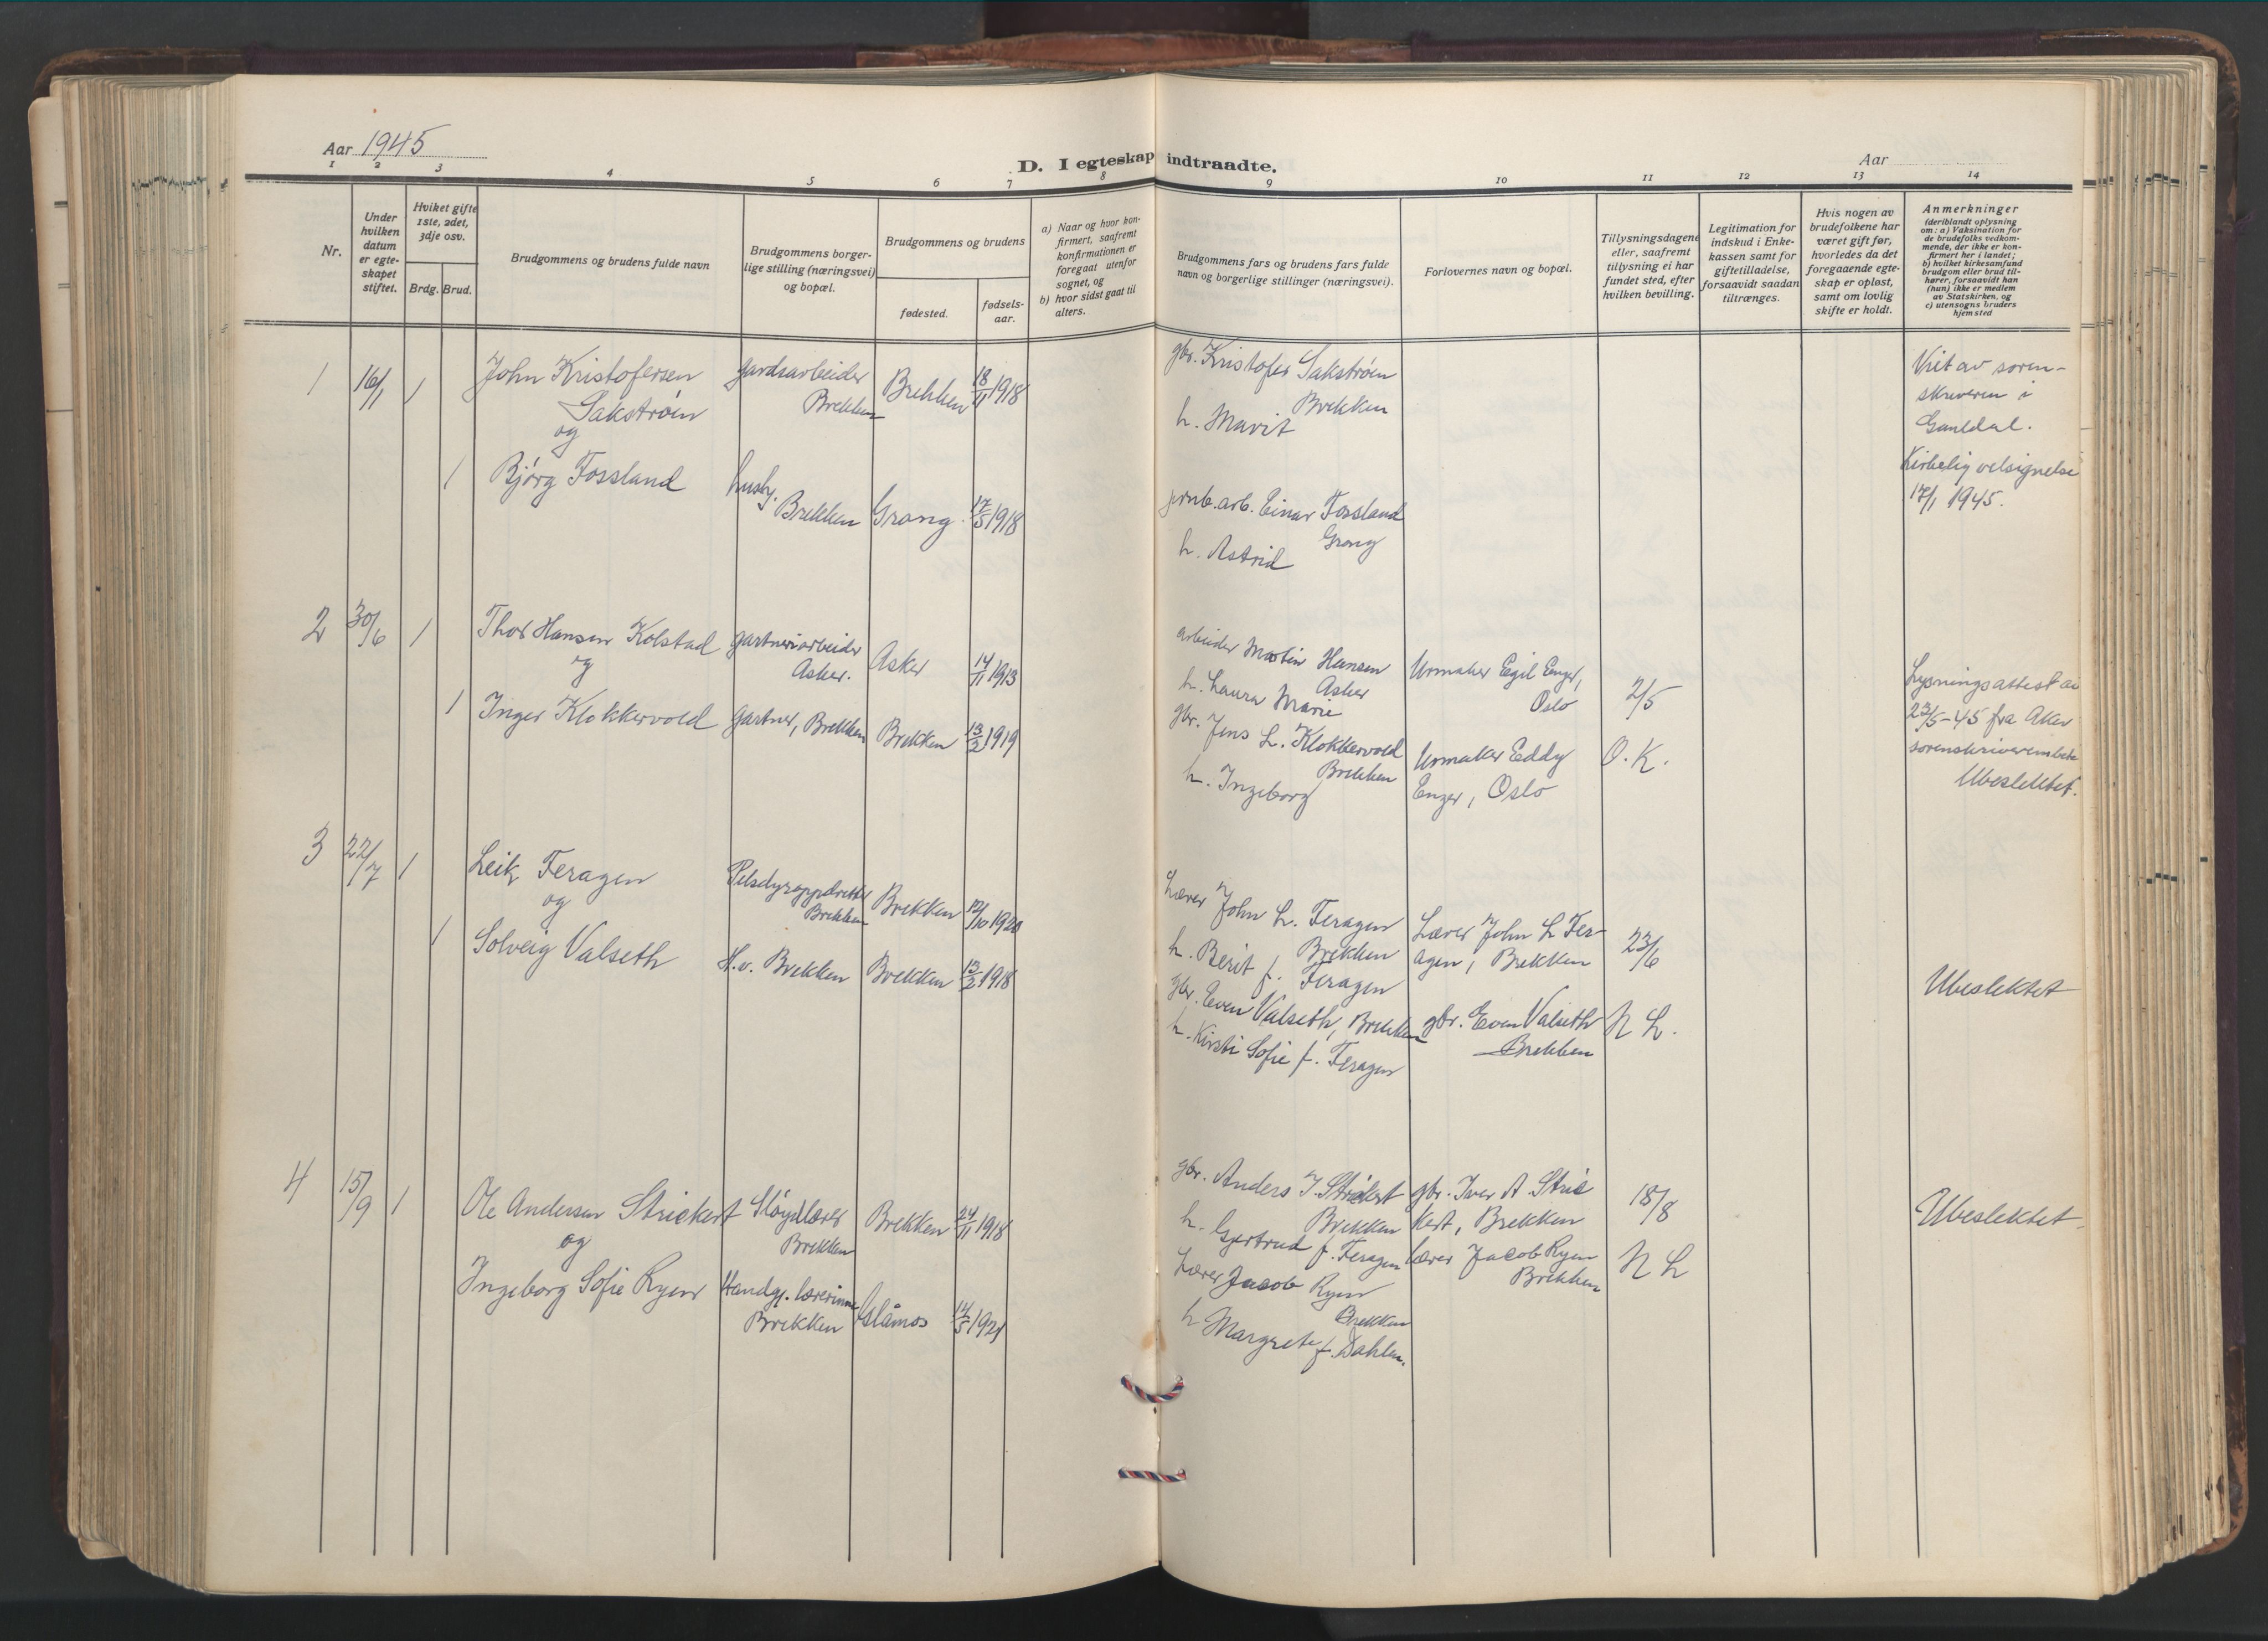 Aar 1945
D. I egteskap indtraadte.
Aar
1 2 3 4 5 6 7 8 9 10 11 12 13 14
Nr.
Under
hvilken
datum
er egte-
skapet
stiftet.
Hviket gifte
1ste, 2det,
3dje osv.
Brdg. Brud.
Brudgommens og brudens fulde navn
Brudgommens borger-
lige stilling (næringsvei)
og bopæl.
Brudgommens og brudens
fødested.
fødsels-
aar.
a) Naar og hvor kon-
firmert, saafremt
konfirmationen er
foregaat utenfor
sognet, og
b) hvor sidst gaat til
alters.
Brudgommens fars og brudens fars fulde
navn og borgerlige stillinger (næringsvei).
Forlovernes navn og bopæl.
Tillysningsdagene
eller, saafremt
tillysning ei har
fundet sted, efter
hvilken bevilling.
Legitimation for
indskud i Enke-
kassen samt for
giftetilladelse,
forsaavidt saadan
tiltrænges.
Hvis nogen av
brudefolkene har
været gift før,
hvorledes da det
foregaaende egte-
skap er opløst,
samt om lovlig
skifte er holdt.
Anmerkninger
(deriblandt oplysning
om: a) Vaksination for
de brudefolks vedkom-
mende, der ikke er kon-
firmert her i landet;
b) hvilket kirkesamfund
brudgom eller brud til-
hører, forsaavidt han
(hun) ikke er medlem
av Statskirken, og
c) utensogns bruders
hjemsted
1
16/1
1
John Kristofersen
Sakstrøen
og
gardsarbeider
Brekken
Brekken
18/11 1918
1
Bjørg Fossland
husbj.
Brekken
Grong
17/5 1918
gbr. Kristofer Sakstrøen
Brekken
h. Marit
jernb.arb. Einar Fossland
Grong
h. Astrid
Viet av soren-
skriveren i
Gauldal.
Kirkelig velsignelse
17/1 1945.
2
30/6
1
Thor Hansen Kolstad
og
gartneriarbeider
Asker.
Asker
14/11 1913
1
Inger Klokkervold
gartner, Brekken
Brekken
13/2 1919
arbeider Martin Hansen
Asker
h. Laura Marie
gbr. Jens L. Klokkervold
Brekken
h. Ingeborg
Urmaker Egil Enger,
Oslo
Urmaker Eddy
Enger, Oslo
2/5
O. K.
Lysningsattest av
23/5-45 fra Aker
sorenskriverembete
Ubeslektet.
3
22/7
1
Leik Feragen
og
Pelsdyroppdretter
Brekken
Brekken
12/10 1920
1
Solveig Valseth
H.v. Brekken
Brekken
13/2 1918
Lærer John L. Feragen
Brekken
h. Berit f. Feragen
gbr. Even Valseth, Brekken
h. Kirsti Sofie f. Feragen
Lærer John L Fer-
agen, Brekken
gbr. Even Valseth
Brekken
23/6
N L.
Ubeslektet
4
15/9
1
Ole Andersen Strickert
og
Sløydlærer
Brekken
Brekken
24/11 1918
Ingeborg Sofie Ryen
Handgj. lærerinne
Brekken
14/5 1921
gbr. Anders J. Strickert
Brekken
h. Gjertrud f. Feragen
Lærer Jacob Ryen
Brekken
h Margrete f. Dahlen.
gbr. Iver A Stric
kert, Brekken
Lærer Jacob Ryen
Brekken
18/8
N L
Ubeslektet.